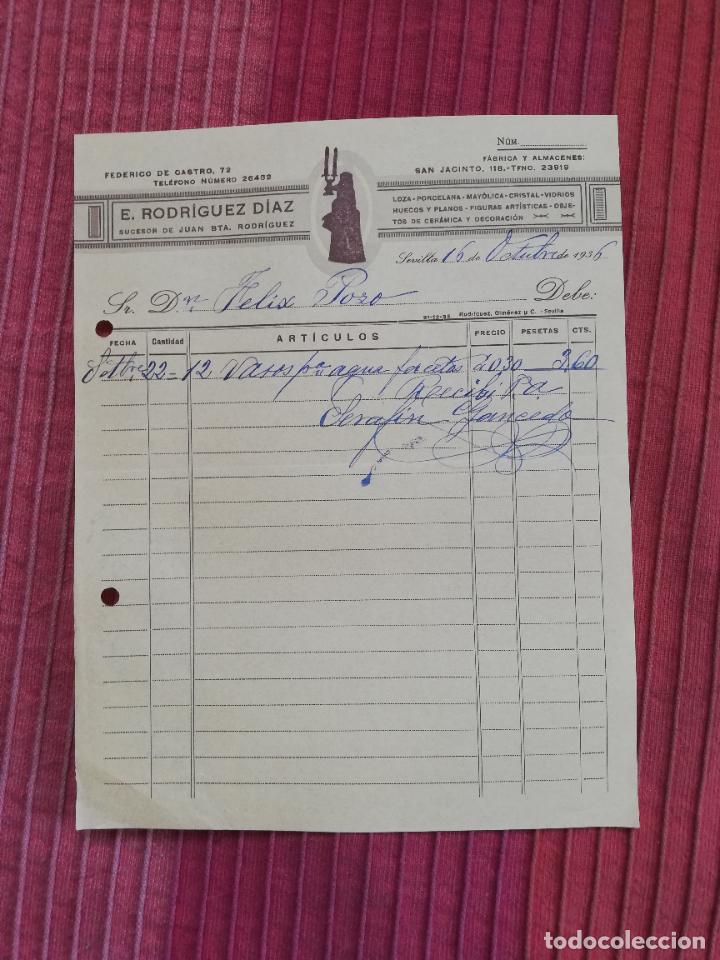 NÚM.
FEDERICO DE CASTRO, 72
TELÉFONO NÚMERO 26482
FÁBRICA Y ALMACENES:
SAN JACINTO, 118.-TFNO. 23919
E. RODRÍGUEZ DÍAZ
SUCESOR DE JUAN BTA. RODRÍGUEZ
LOZA-PORCELANA-MAYÓLICA-CRISTAL-VIDRIOS
HUECOS Y PLANOS-FIGURAS ARTÍSTICAS-OBJE-
TOS DE CERÁMICA Y DECORACIÓN
Sevilla 16 de Octubre de 1936
Sr. Dn Felix Pozo Debe:
Rodríguez, Giménez y C.-Sevilla
FECHA Cantidad ARTÍCULOS PRECIO PESETAS CTS.
22-12 Vasos pa agua facetas a 0,30 3,60
Recibí P.A.
Serafin Gancedo
todocoleccion
todocoleccion.net